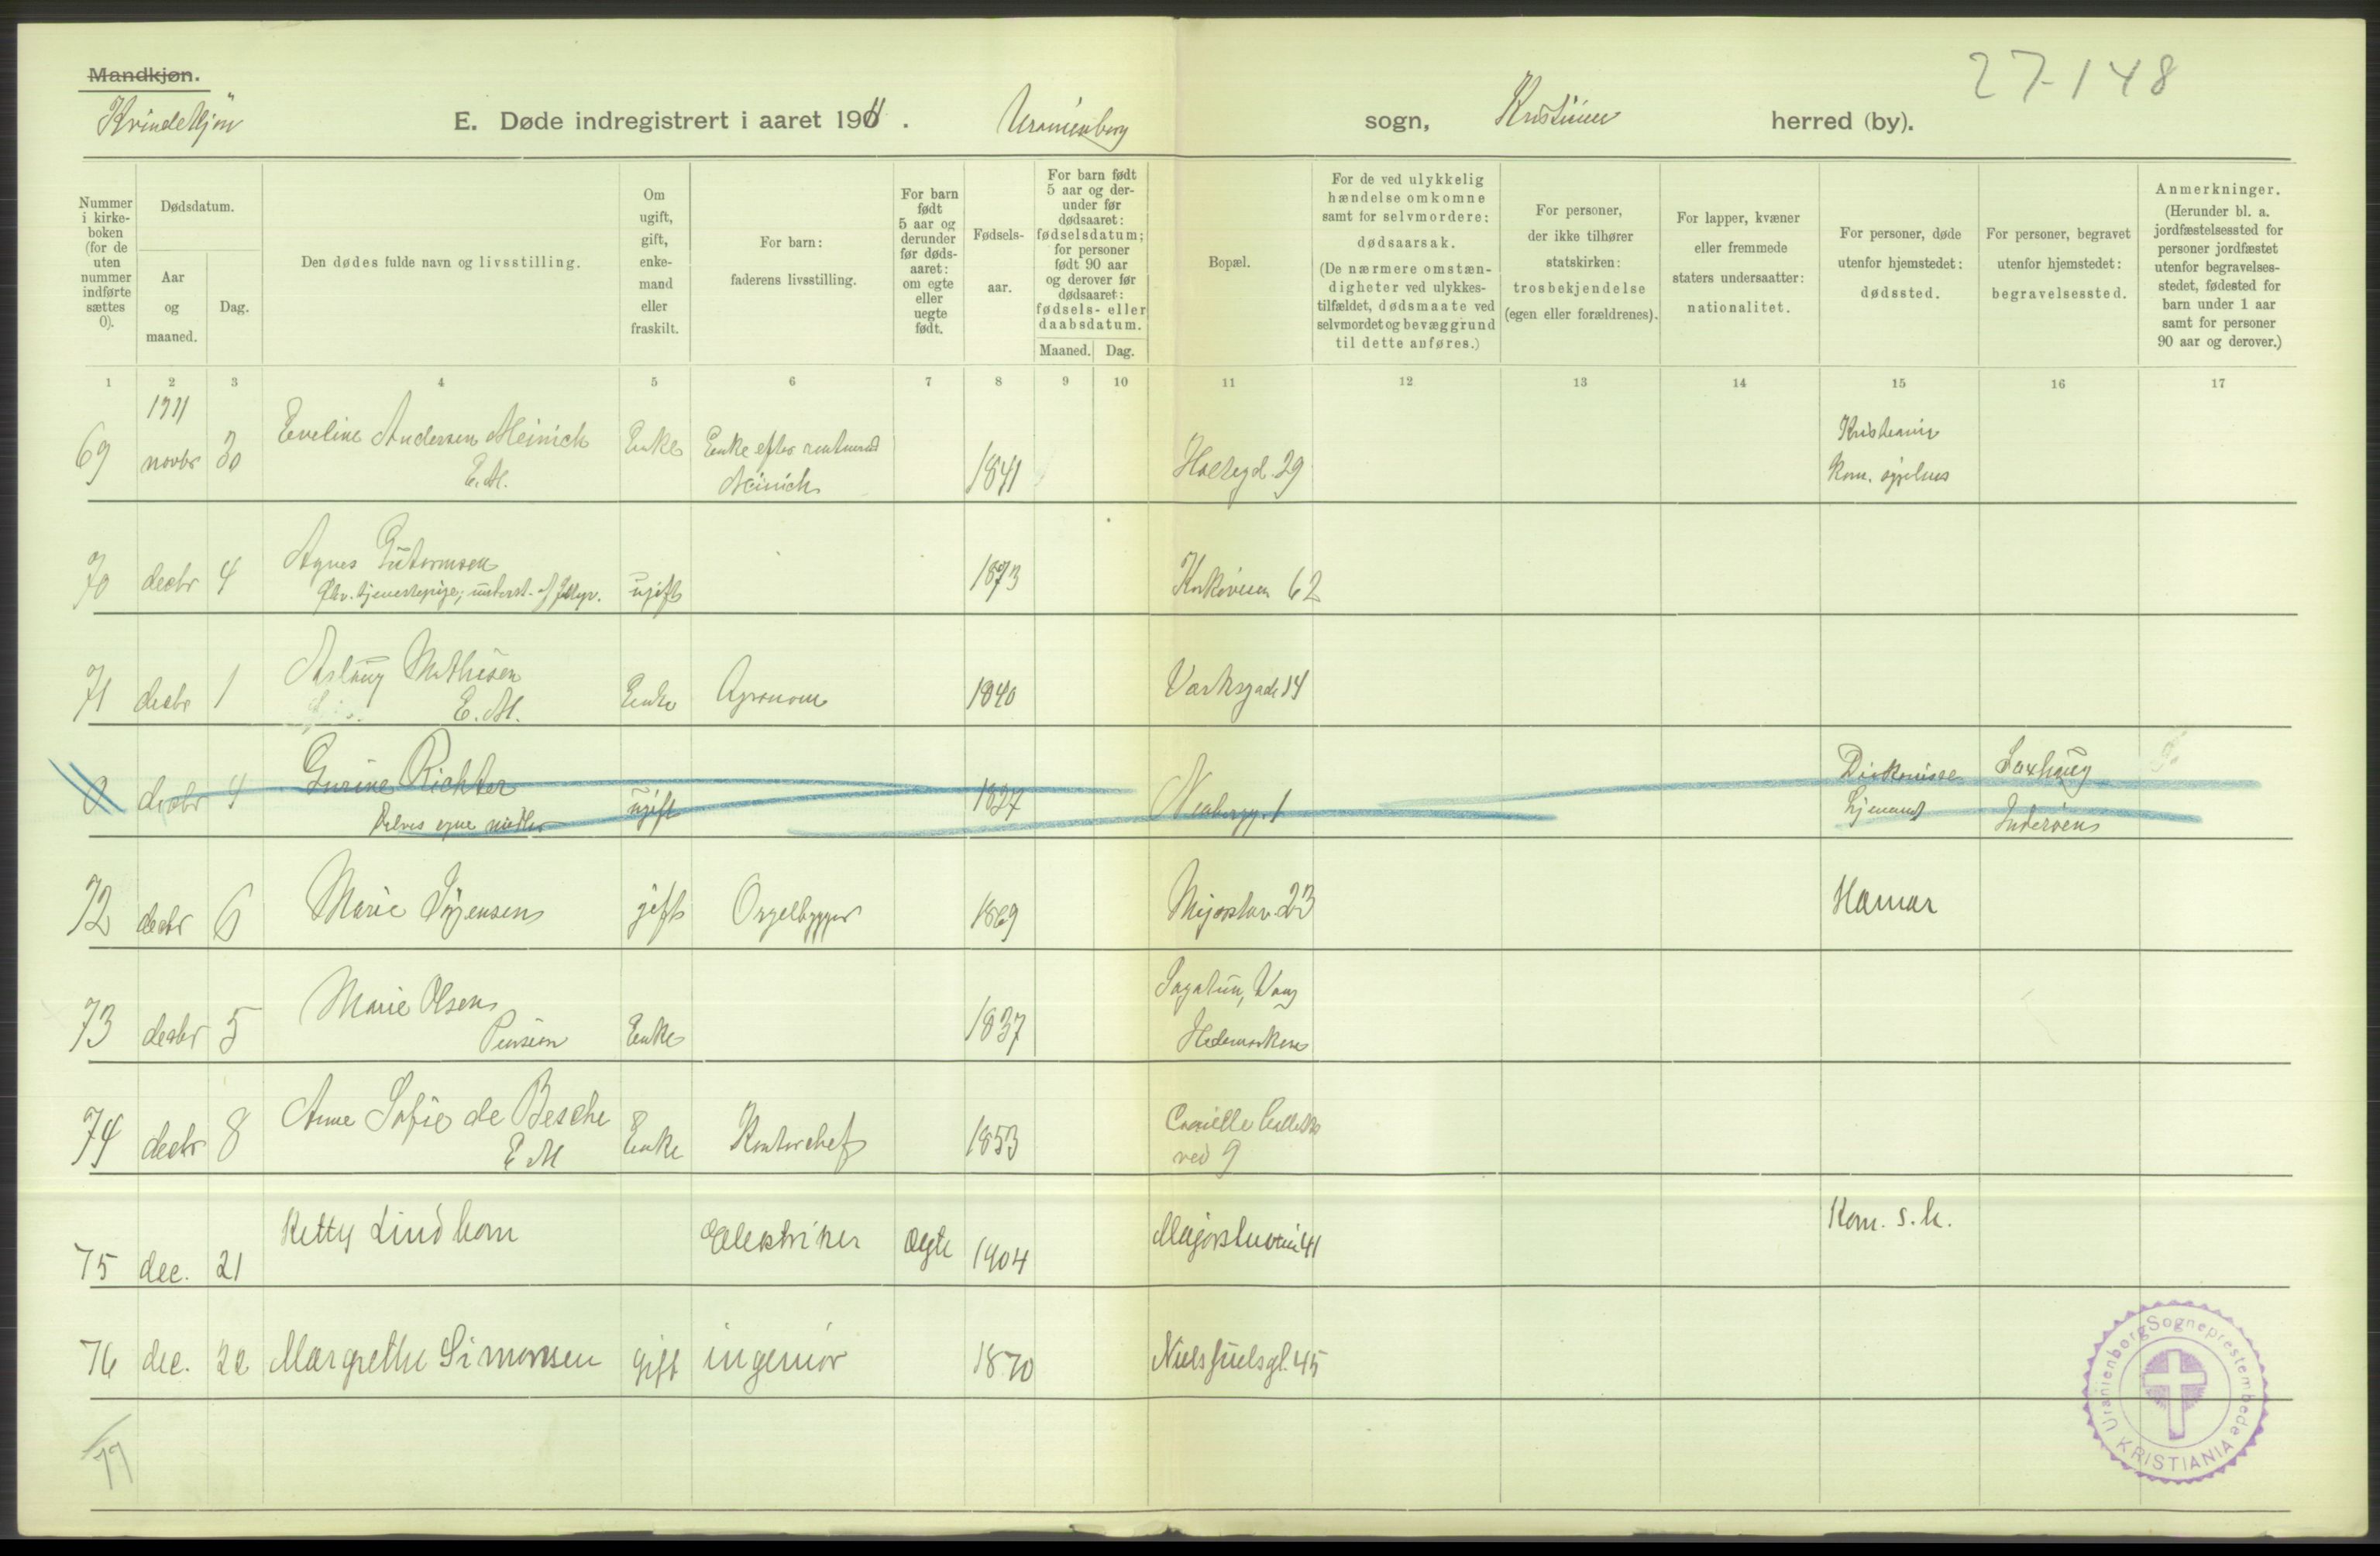 Mandkjøn.
Kvindekjøn
27-148
E. Døde indregistrert i aaret 1911. Uranienborg sogn, Kristiania herred (by).
Nummer i kirkeboken (for de uten nummer indførte sættes 0).
Dødsdatum.
Aar og maaned.
Dag.
Den dødes fulde navn og livsstilling.
Om ugift, gift, enkemand eller fraskilt.
For barn: faderens livsstilling.
For barn født 5 aar og derunder før dødsaaret: om egte eller uegte født.
Fødselsaar.
For barn født 5 aar og derunder før dødsaaret: fødselsdatum; for personer født 90 aar og derover før dødsaaret: fødsels- eller daabsdatum.
Maaned. Dag.
Bopæl.
For de ved ulykkelig hændelse omkomne samt for selvmordere: dødsaarsak. (De nærmere omstændigheter ved ulykkestilfældet, dødsmaate ved selvmordet og bevæggrund til dette anføres.)
For personer, der ikke tilhører statskirken: trosbekjendelse (egen eller forældrenes).
For lapper, kvæner eller fremmede staters undersaatter: nationalitet.
For personer, døde utenfor hjemstedet: dødssted.
For personer, begravet utenfor hjemstedet: begravelsessted.
Anmerkninger. (Herunder bl. a. jordfæstelsessted for personer jordfæstet utenfor begravelsesstedet, fødested for barn under 1 aar samt for personer 90 aar og derover.)
1 2 3 4 5 6 7 8 9 10 11 12 13 14 15 16 17
1911
69 novbr 30 Eveline Andersen Meinich E.M. Enke Enke efter Meinich 1841 Holtegd. 29 Kristiania Kom. sygehus
70 decbr 4 Agnes Gutormsen ugift 1873 Kirkeveien 62
71 decbr 1 Aslaug Mathisen E.M. Enke Agronom 1840 14
0 decbr 4 Gurine Richter egne midler ugift 1827 1 Diakonisse hjemmet Saxhaug Inderøen
72 decbr 6 Marie Jørgensen gift Orgelbygger 1869 Majorstuv. 23 Hamar
73 decbr 5 Marie Olsen Pension Enke 1837 Sagatun, Vang Hedemarken
74 decbr 8 Anne Sofie de Besche E M Enke Kontorchef 1853 Camilla Colletts vei 9
75 dec. 21 Ketty Lindholm Elektriker Ægte 1904 Majorstuvei 41 Kom. s. h.
76 dec. 22 Margrethe Simonsen gift ingeniør 1870 Niels Juels gt. 45
77
Uranienborg Sogneprestembede
KRISTIANIA